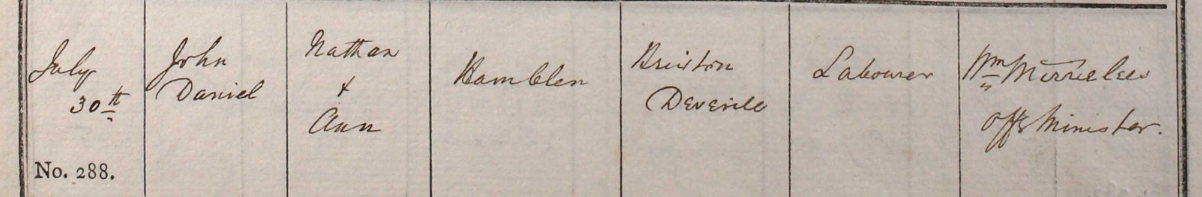 July
30th
No. 288.
John
Daniel
Nathan
&
Ann
Bamblen
Brixton
Deverell
Labourer
Wm
Offg Minister.